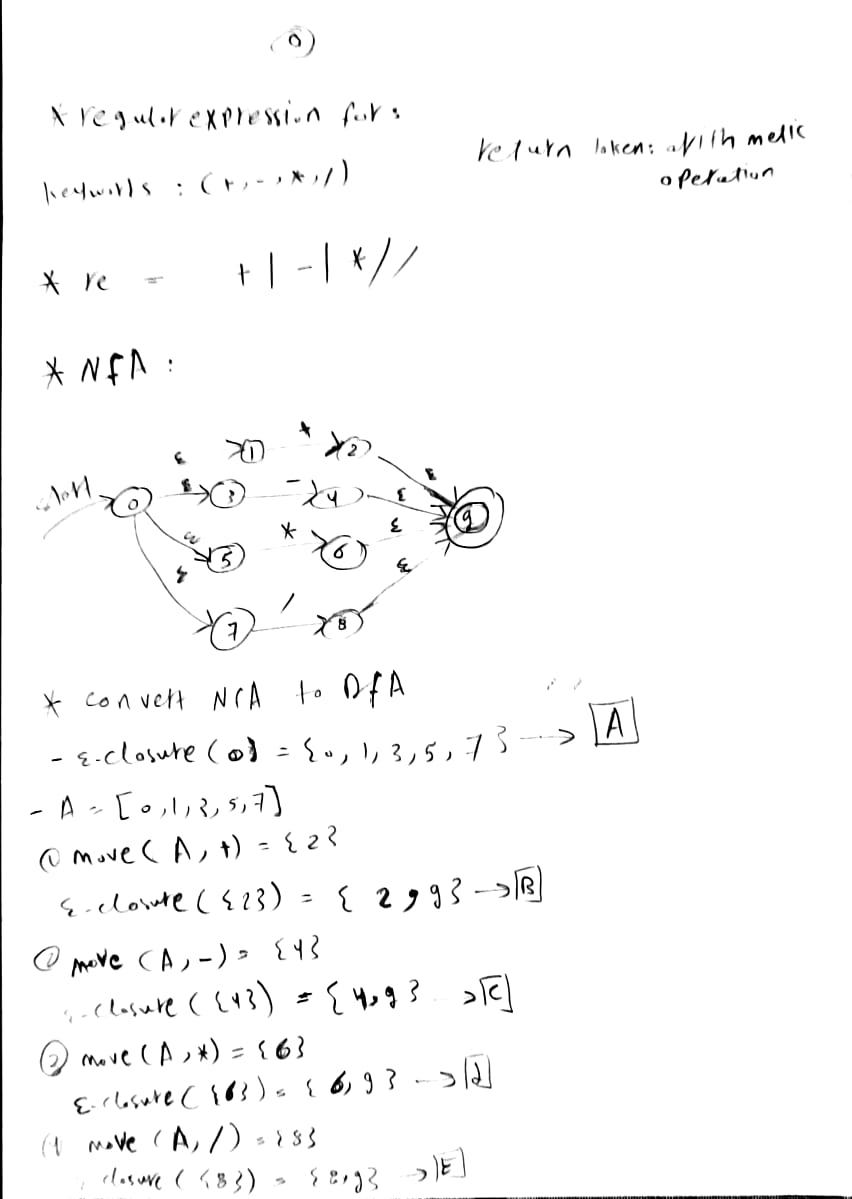 0)
* regular expression for:
keywords : (+,-,*,/)
return token: arithmetic
operation
* re = +|-|*|/
* NFA :
start 0 ε 1 + 2 ε
ε 3 - 4 ε 9
ε 5 * 6 ε
ε 7 / 8 ε
* convert NFA to DFA
- ε-closure(0} = {0, 1, 3, 5, 7} --> A
- A = [0,1,3,5,7]
① move(A, +) = {2}
ε-closure({2}) = {2,9} -> B
② move (A,-) = {4}
ε-closure({4}) = {4,9} -> C
③ move(A,*) = {6}
ε-closure({6}) = {6,9} -> d
(4 move (A, /) = {8}
closure({8}) = {8,9} -> E